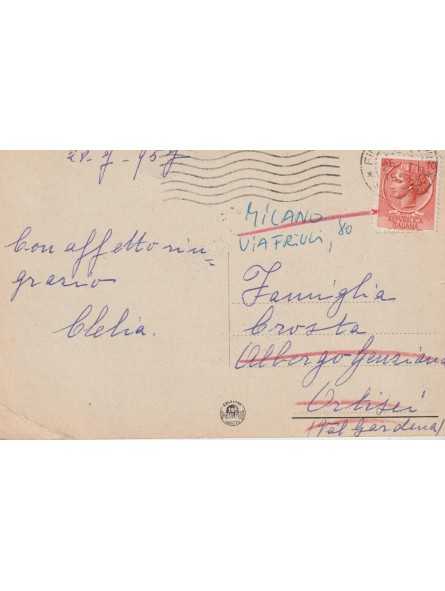 28-7-957
Con affetto rin-
grazio
Clelia.
MILANO
VIA FRIULI, 80
Famiglia
Crosta
Albergo Genziana
Ortisei
(Val Gardena)